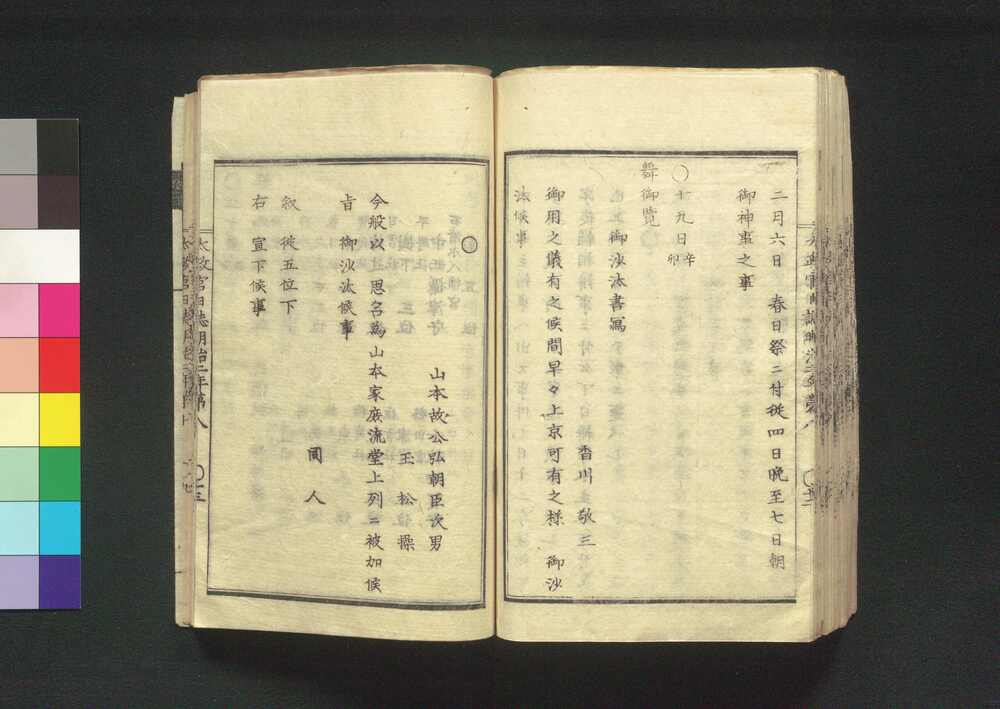 二月六日 春日祭ニ付従四日晩至七日朝
御神事之事
〇十九日 辛卯
舞御覧
御沙汰書写
香川敬三
御用之儀有之候間早々上京可有之様 御沙
汰候事
〇
山本故公弘朝臣次男
玉松操
今般以社思召為山本家庶流堂上列ニ被加候
旨 御沙汰候事
同人
叙 従五位下
右 宣下候事
太政官日誌明治二年第八